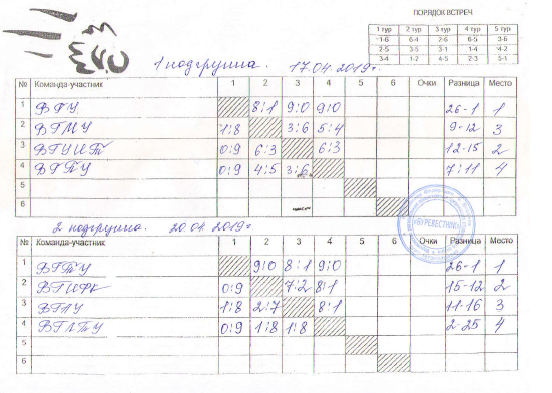 ПОРЯДОК ВСТРЕЧ
1 тур 2 тур 3 тур 4 тур 5 тур
1-6 6-4 2-6 6-5 3-6
2-5 3-5 3-1 1-4 4-2
3-4 1-2 4-5 2-3 5-1
1 подгруппа. 17.04.2019г.
№ Команда-участник 1 2 3 4 5 6 Очки Разница Место
1 ВГУ 8:1 9:0 9:0 26-1 1
2 ВГМУ 1:8 3:6 5:4 9-12 3
3 ВГУИТ 0:9 6:3 6:3 12-15 2
4 ВГПУ 0:9 4:5 3:6 7:11 4
5
6
БУРЕВЕСТНИК
2 подгруппа. 20.04.2019г.
№ Команда-участник 1 2 3 4 5 6 Очки Разница Место
1 ВГТУ 9:0 8:1 9:0 26-1 1
2 ВГИФК 0:9 7:2 8:1 15-12 2
3 1:8 2:7 8:1 11-16 3
4 ВГЛТУ 0:9 1:8 1:8 2-25 4
5
6